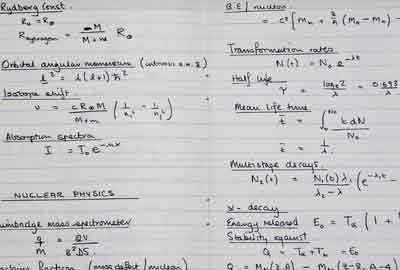 Rydberg Const.
R₀ = R∞
R hydrogen = M / M+m R∞
Orbital angular momentum
l² = l(l+1)ħ²
Isotope shift.
υ = cR∞M / M+m (1/n₁² - 1/n₂²)
Absorption spectra
I = I₀e
NUCLEAR PHYSICS
mass spectrometer
q/m =
fraction (mass defect / nucleon)
B.E / nucleon
= c² [Mn + Z/A (MH - Mn) -
Transformation rates
N(t) = N₀ e^-λt
Half life
τ = loge2 / λ = 0.693 / λ
Mean life time
t̄ = ∫ t dN / N₀
t̄ = 1/λ
Multistage decays.
N₂(t) = N₁(0)λ₁ / λ₂ - λ₁ (e^-λ₁t -
α - decay
Energy released E₀ = Tα (1 +
Stability against
Q = Tα + Tb = E₀